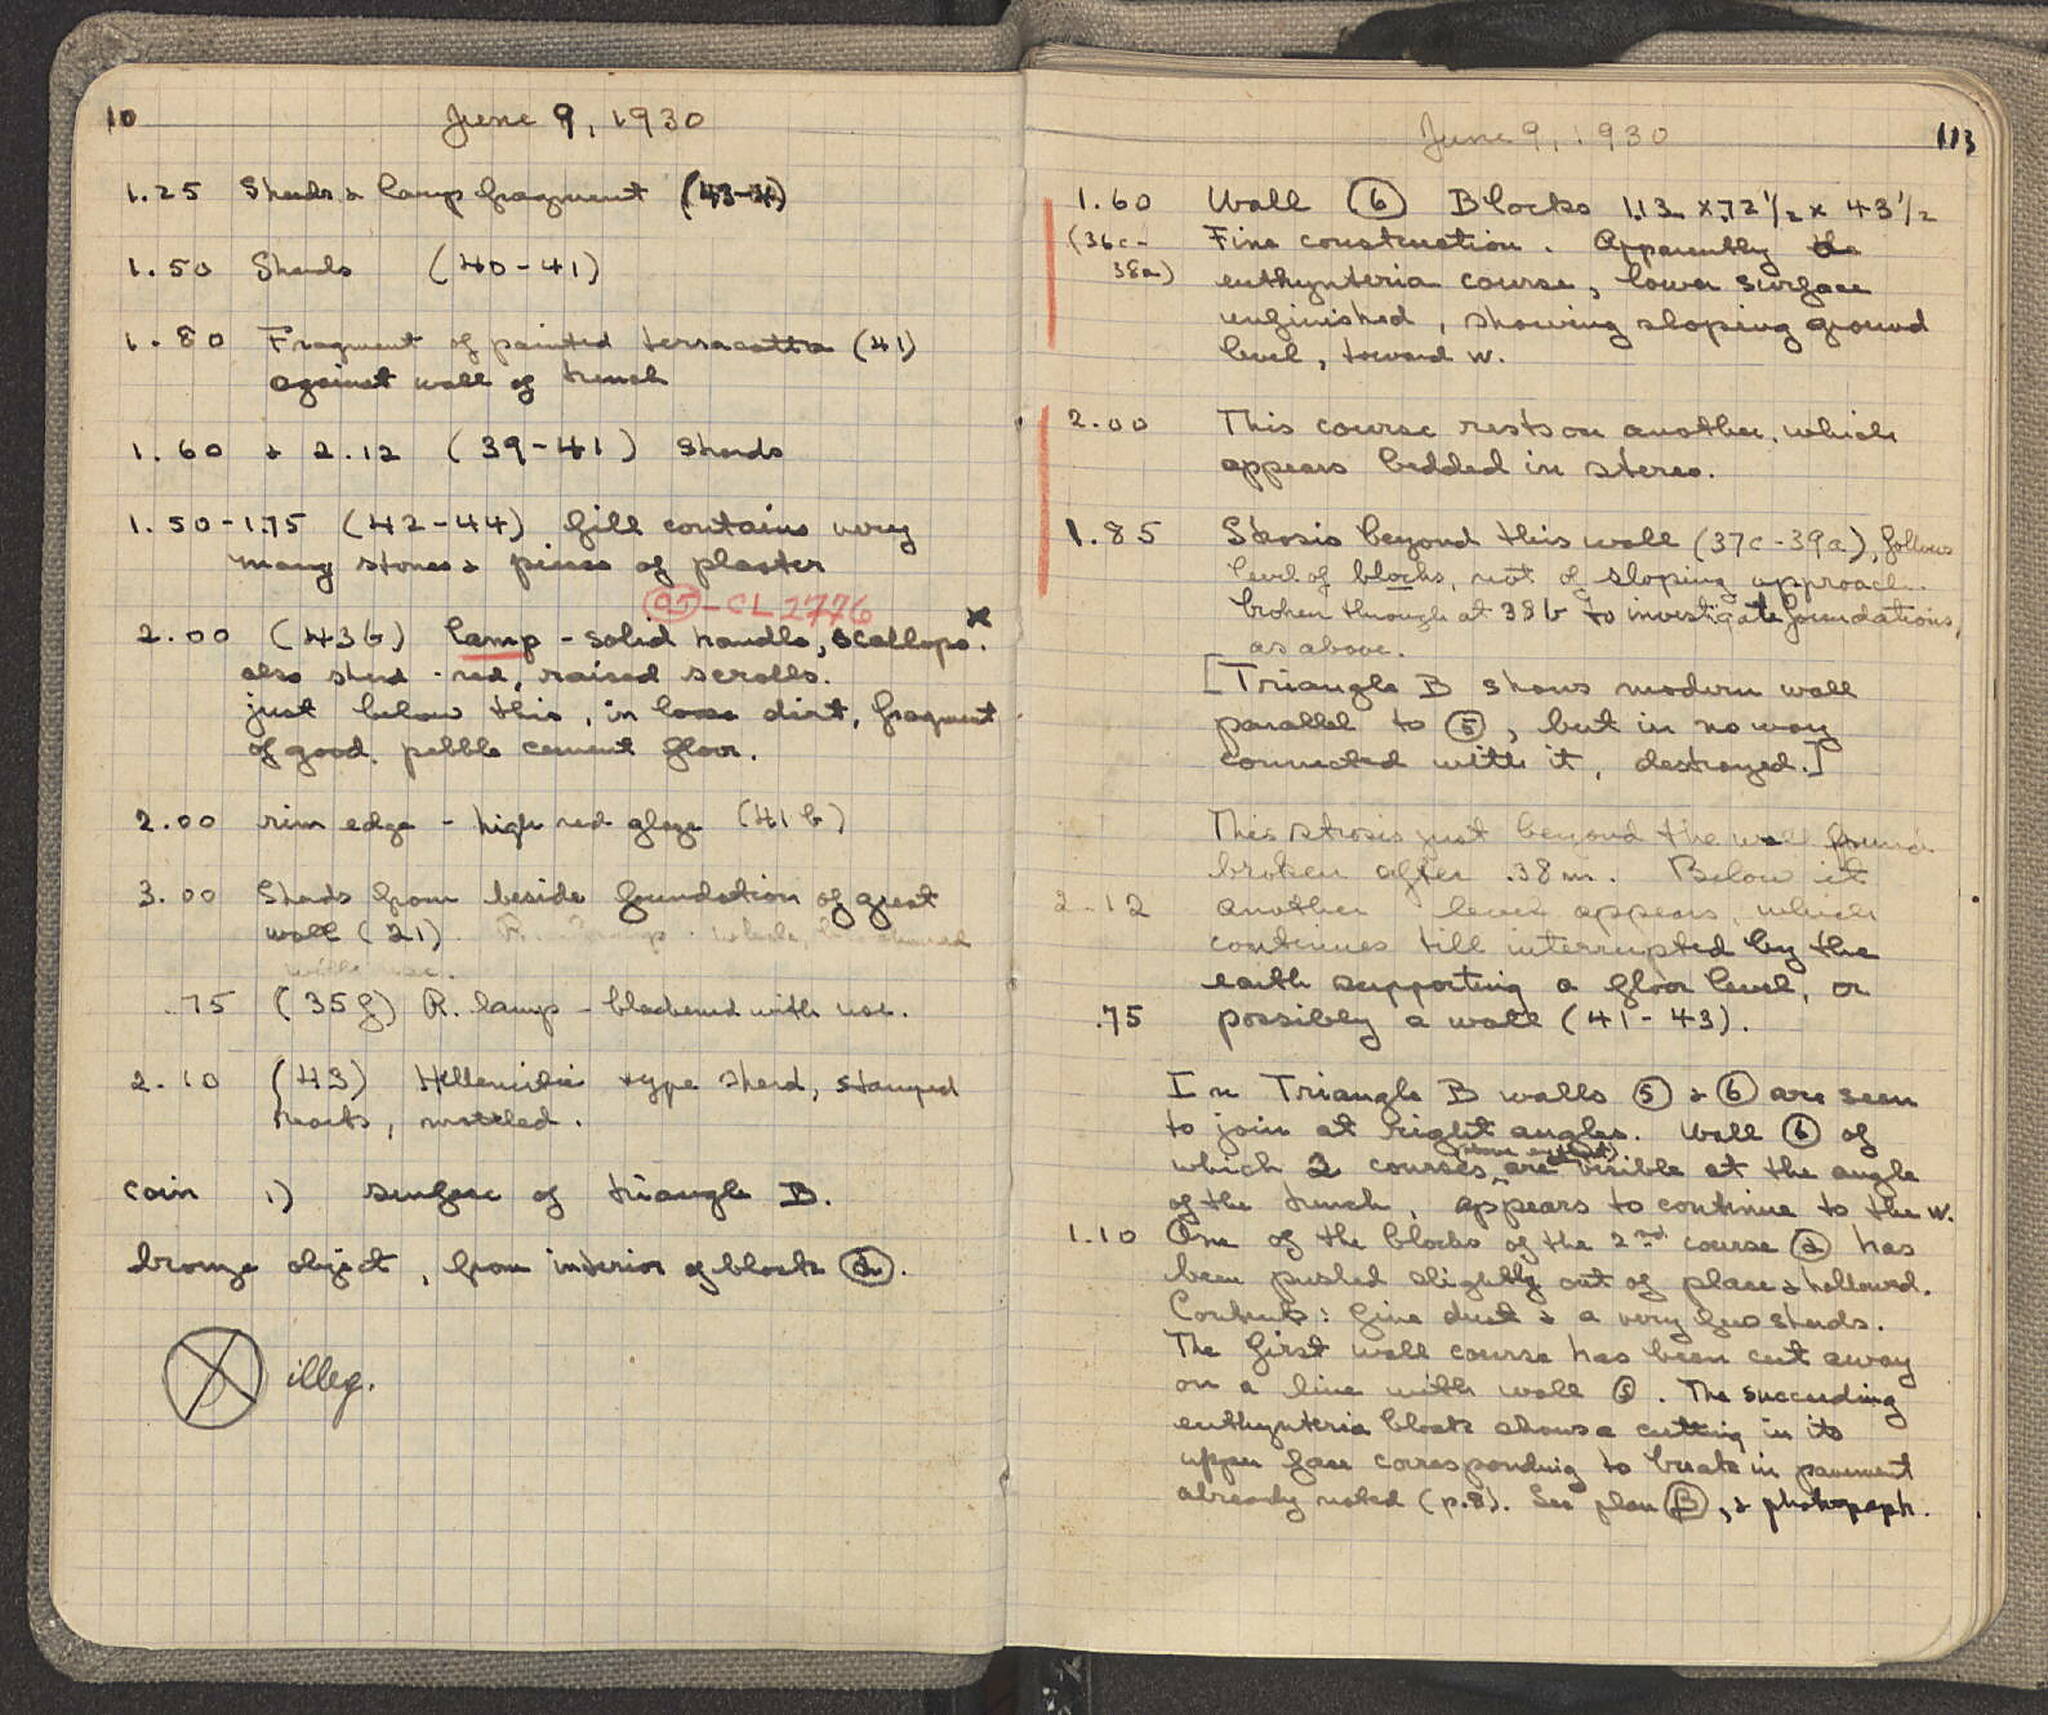 10
June 9, 1930
1.25 Sherds & lamp fragment (43-44)
1.50 Sherds (40-41)
1.80 Fragment of painted terracotta (41)
against wall of trench
1.60 & 2.12 (39-41) Sherds
1.50-1.75 (42-44) fill contains very
many stones & pieces of plaster
CL 2776
2.00 (43b) lamp - solid handle, scallops.
also sherd - red, raised scrolls.
just below this, in loose dirt, fragment
of good pebble cement floor.
2.00 rim edge - high red glaze (41b)
3.00 Sherds from beside foundation of great
wall (21)
.75 (35g) R. lamp - blackened with use.
2.10 (43) Hellenistic type sherd, stamped
mottled.
coin 1) surface of triangle B.
bronze object, from interior of block
illeg.
June 9, 1930
113
1.60 Wall 6 Blocks 1.13 x .72 1/2 x 43 1/2
(36c- Fine construction. Apparently the
38a) euthynteria course, lower surface
unfinished, showing sloping ground
level, toward W.
2.00 This course rests on another, which
appears bedded in stereo.
1.85 Strosis beyond this wall (37c-39a), follows
level of blocks, not of sloping approach.
broken through at 38b to investigate foundations,
as above.
[Triangle B shows modern wall
parallel to 5, but in no way
connected with it, destroyed.]
This strosis just beyond the wall found
broken after .38 m. Below it
2.12 another level appears, which
continues till interrupted by the
earth supporting a floor level, or
.75 possibly a wall (41-43).
In Triangle B walls 5 & 6 are seen
to join at right angles. Wall 6 of
which 2 courses are visible at the angle
of the trench, appears to continue to the W.
1.10 One of the blocks of the 2nd course has
been pushed slightly out of place & hollowed.
Contents: fine dust & a very few sherds.
The first wall course has been cut away
on a line with wall 5. The succeeding
euthynteria block shows a cutting in its
upper face corresponding to break in pavement
already noted (p.8). See plan B, & photograph.